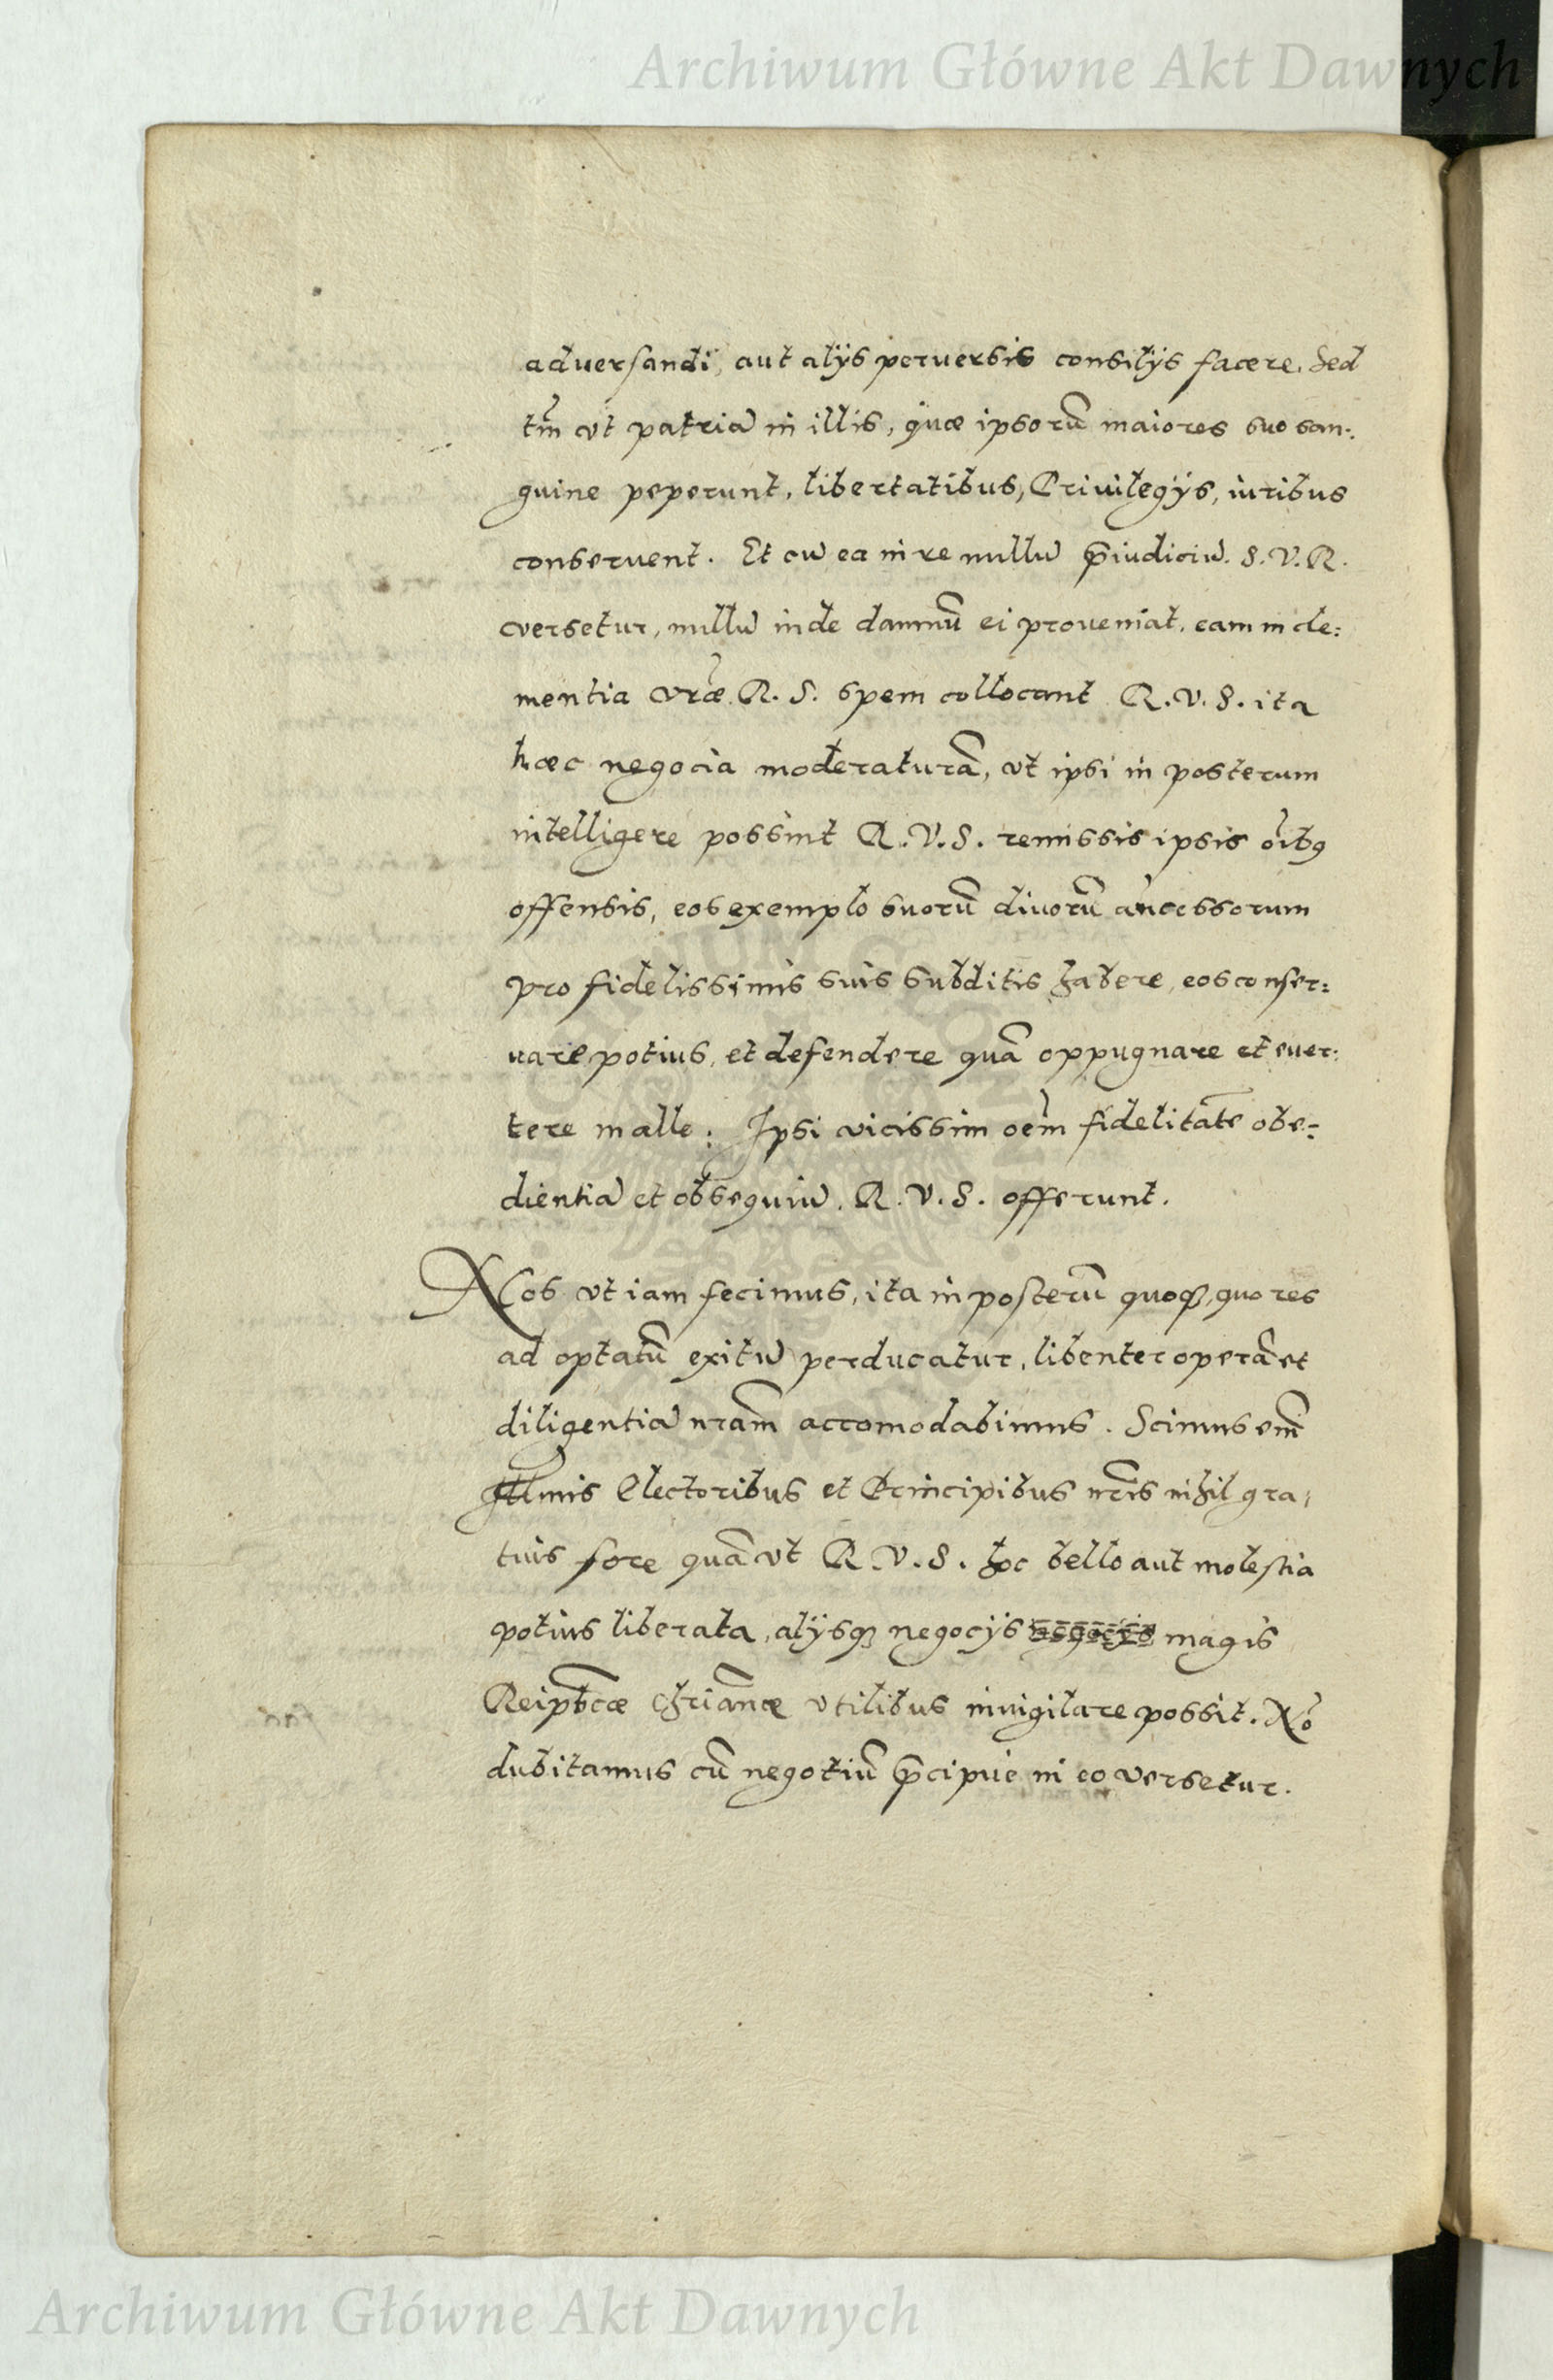 Archiwum Główne Akt Dawnych
aduersandi, aut alijs peruersis consilijs facere. Sed
tm̃ vt patriã in illis, quæ ipsorũ maiores suo san:
guine pepererunt, libertatibus, Priuilegijs, iuribus
conseruent. Et cũ ea in re nullũ p̃iudiciũ. S. V. R.
versetur, nullũ inde damnũ ei proueniat, eam in cle:
mentia vr̃æ R. S. spem collocant R. V. S. ita
hæc negocia moderaturã, vt ipsi in posterum
intelligere possint R. V. S. remissis ipsis oĩbꝯ
offensis, eos exemplo suorũ diuorũ añcessorum
pro fidelissimis suis subditis habere, eos conser:
uare potius, et defendere quã oppugnare et euer:
tere malle: Ipsi vicissim oem̃ fidelitatẽ obe:
dientiã et obsequiũ. R. V. S. offerunt.
Nos vt iam fecimus, ita in posterũ quoqꝫ, quo res
ad optatũ exitũ perducatur, libenter operã et
diligentiã nram̃ accomodabimus. Scimus em̃
Illmis Electoribus et Principibus nr̃is nihil gra:
tius fore quã vt R. V. S. hoc bello aut molestia
potius liberata, alijsqꝫ negocijs negocijs magis
Reipb̃cæ Chriãnæ vtilibus inuigilare possit. Nõ
dubitamus cũ negotiũ p̃cipue in eo versetur.
Archiwum Główne Akt Dawnych